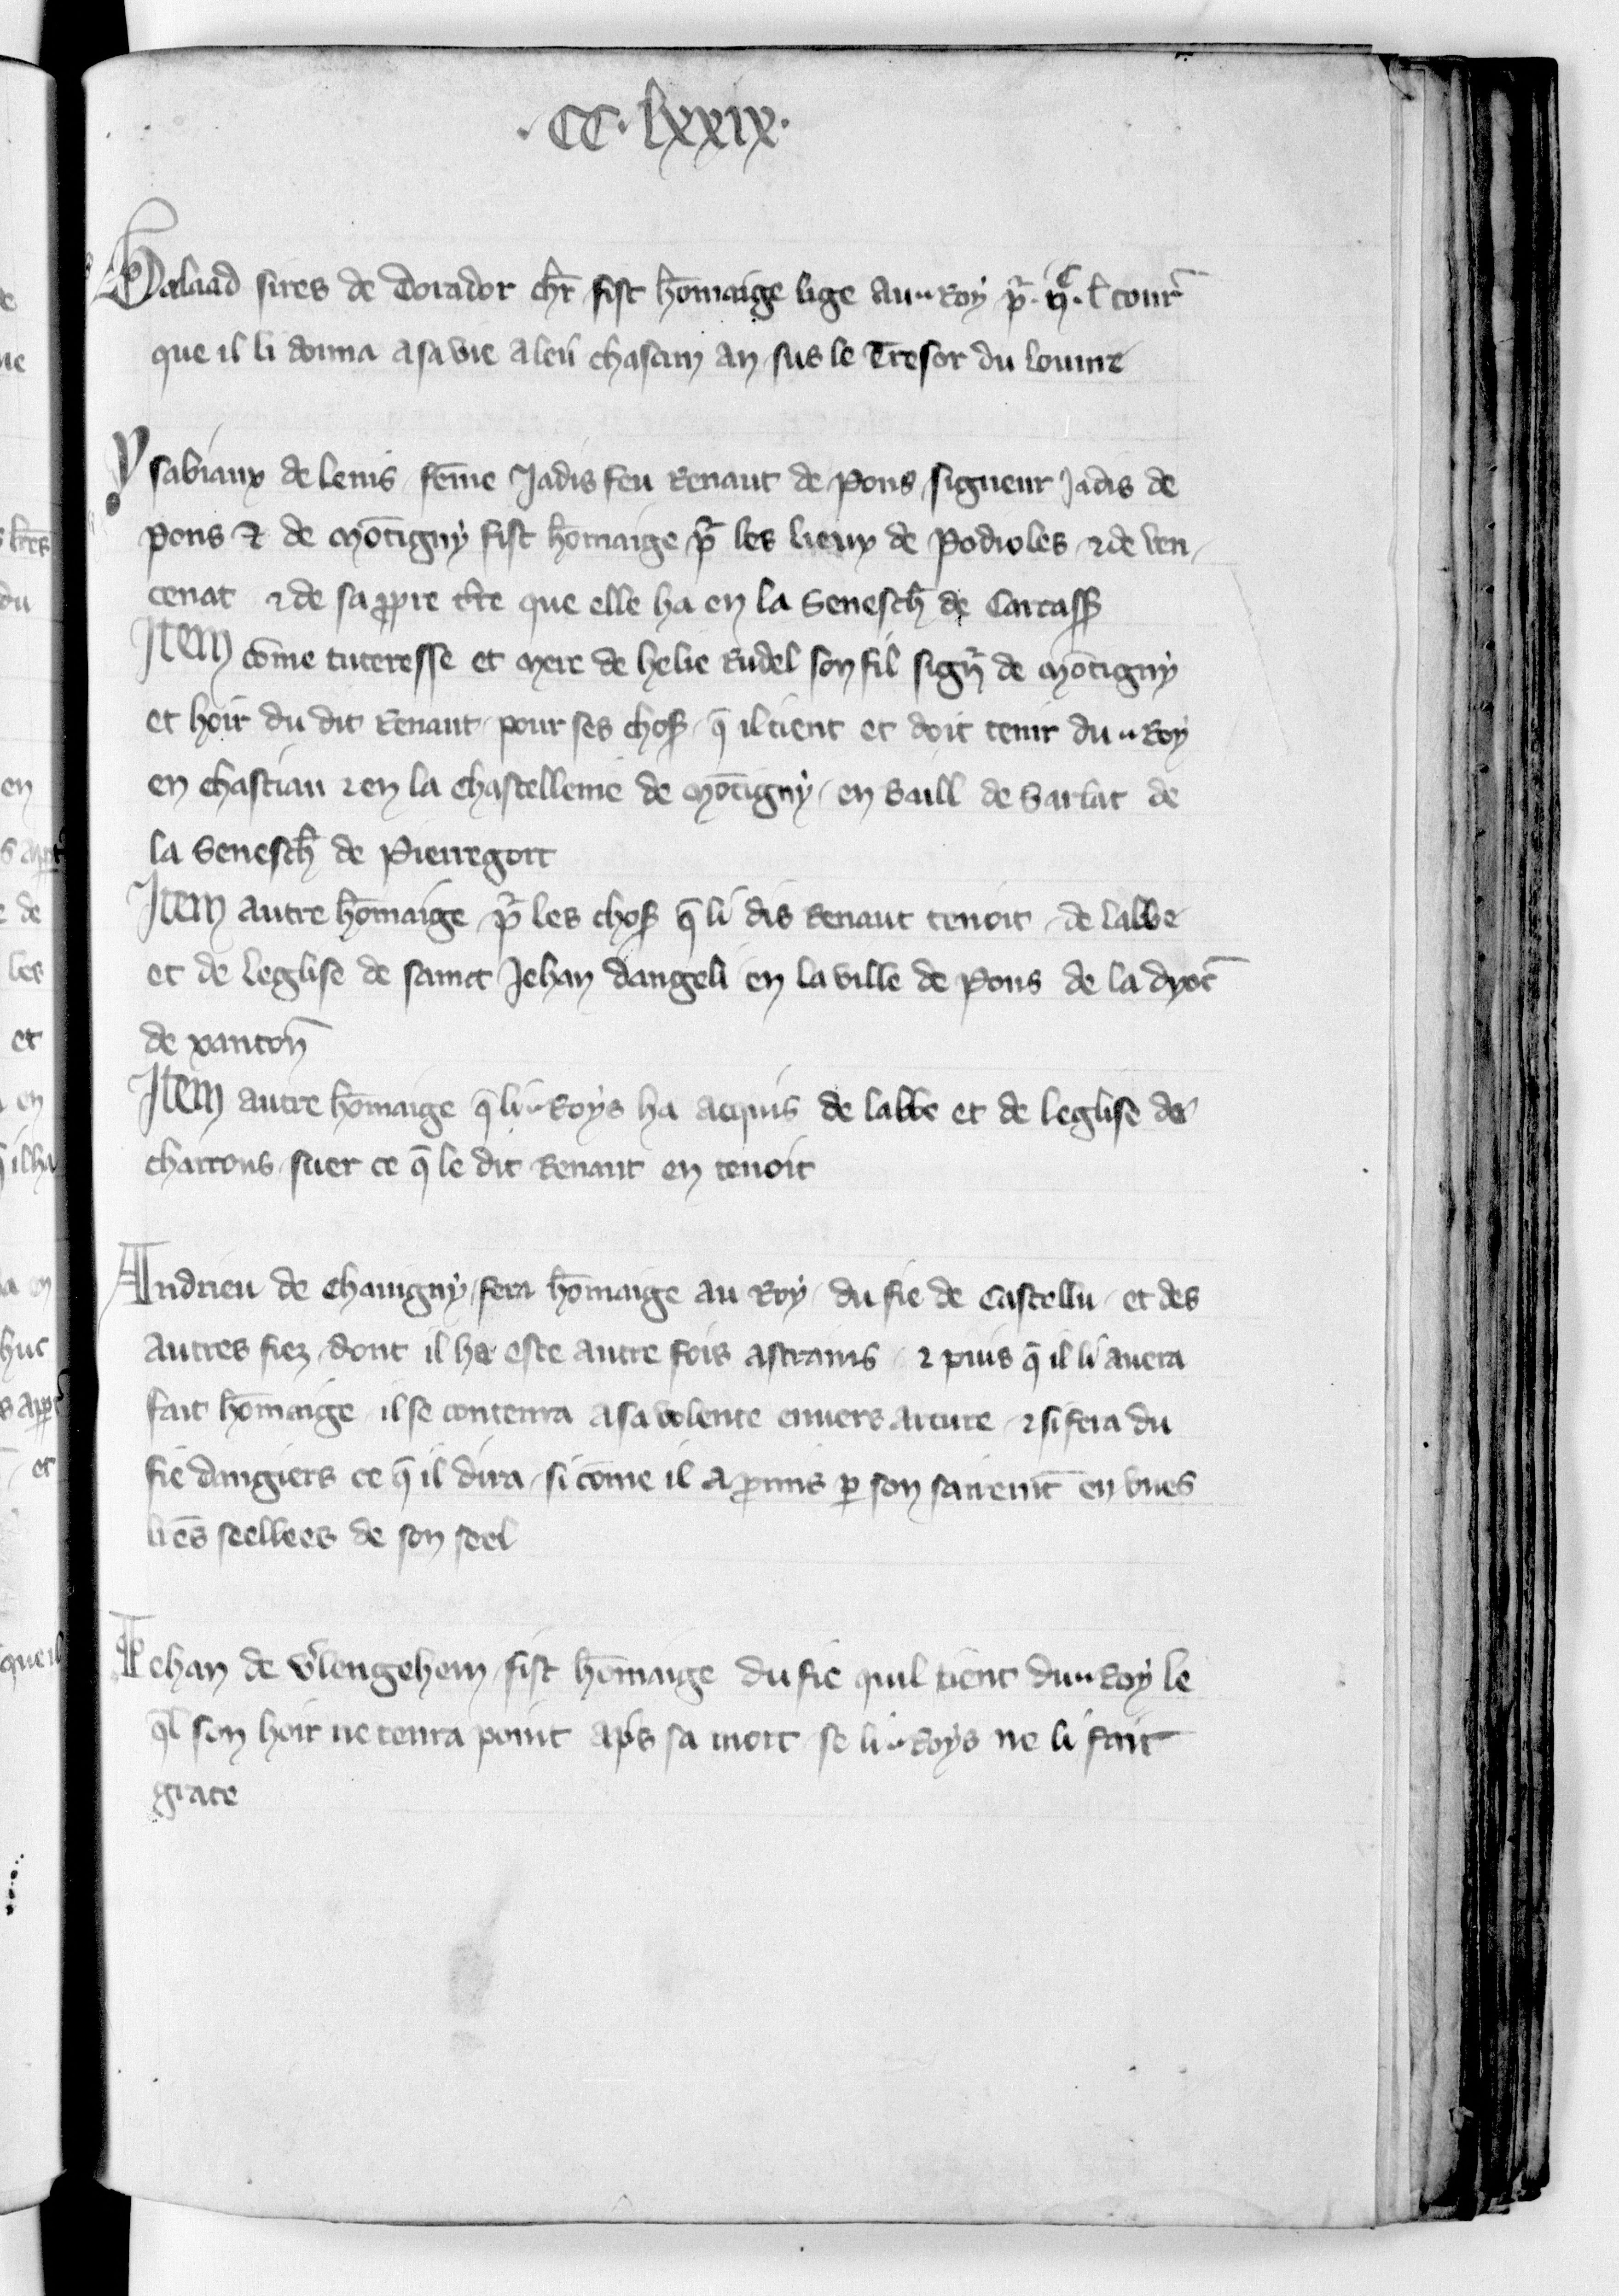 .CC.lxxix.
Galaad sires de Dorador chr̄ fist hōmaige lige au Roy pr̄ .ijC. l̄ tour̄
que il li donna a sa vie a leu chascun an sus le Tresor du Louure
Ysabiaux de Lenis fēme Jadis feu Renaut de Pons signeur Jadis de
Pons et de Mōtigny fist hōmaige pr̄ les lieux de Podioles ⁊ de Ven
cenat ⁊ de sa propre tr̄e que elle ha en la Senesch̄ de Carcass̄
Item cōme tuteresse et mere de helie Rudel son fil sign̄ de Mōtigny
et hoir du dit Renaut pour ses chos̄ q̄ il tient et doit tenir du Roy
en chastiau ⁊ en la chastellenie de Mōtigny en baill de Sarlat de
la Senesch̄ de Pierregort
Item autre hōmaige pr̄ les chos̄ q̄ li dis Renaut tenoit de labbe
et de leglise de sainct Jehan dangeli en la ville de Pons de la dyoc̄
de xanton̄
Item autre hōmaige q̄ li Roys ha acquis de labbe et de leglise de
chartous suer ce q̄ le dit Renaut en tenoit
Andrieu de Chauigny fera hōmaige au Roy du fie de Castellu et des
autres fiez dont il ha este autre fois astrains ⁊ puis q̄ il li auera
fait hōmaige il se contenra a sa volente enuers arture ⁊ si fera du
fie dangiers ce q̄ il dira si cōme il a promis p son sairemt̄ en vnes
lr̄es seellees de son seel
Jehan de Vlengehem fist hōmaige du fie quil tient du Roy le
q̄l son hoir ne tenra point ap̄s sa mort se li Roys ne li fait
grace